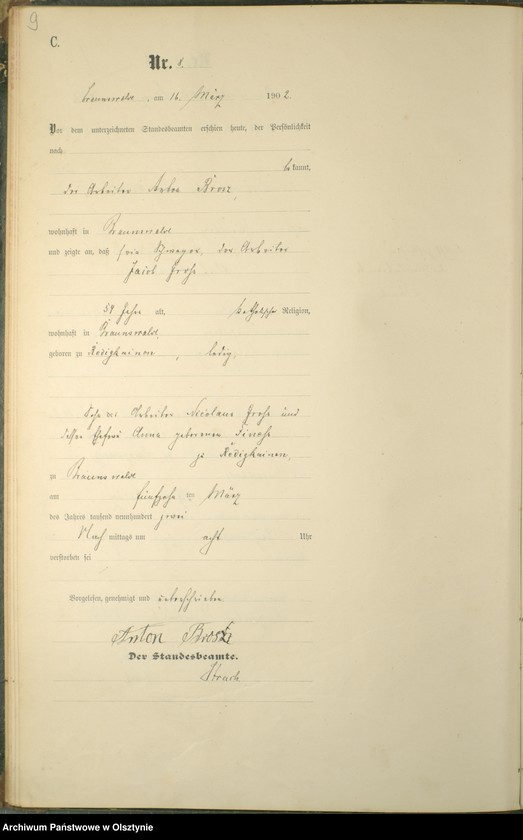 9
C.
Nr. 8
Braunswalde, am 16. März 1902.
Vor dem unterzeichneten Standesbeamten erschien heute, der Persönlichkeit
nach
bekannt,
der Arbeiter Anton
wohnhaft in Braunswalde
und zeigte an, daß sein Schwager, der Arbeiter
Jacob
59 Jahre alt, katholischer Religion,
wohnhaft in Braunswalde,
geboren zu Redigkainen, ledig,
Sohn des Arbeiters Nicolaus und
dessen Ehefrau Anna geborenen
zu Redigkainen,
zu Braunswalde
am fünfzehnten März
des Jahres tausend neunhundert zwei
Nachmittags um acht Uhr
verstorben sei
Vorgelesen, genehmigt und unterschrieben
Anton
Der Standesbeamte.
Archiwum Państwowe w Olsztynie